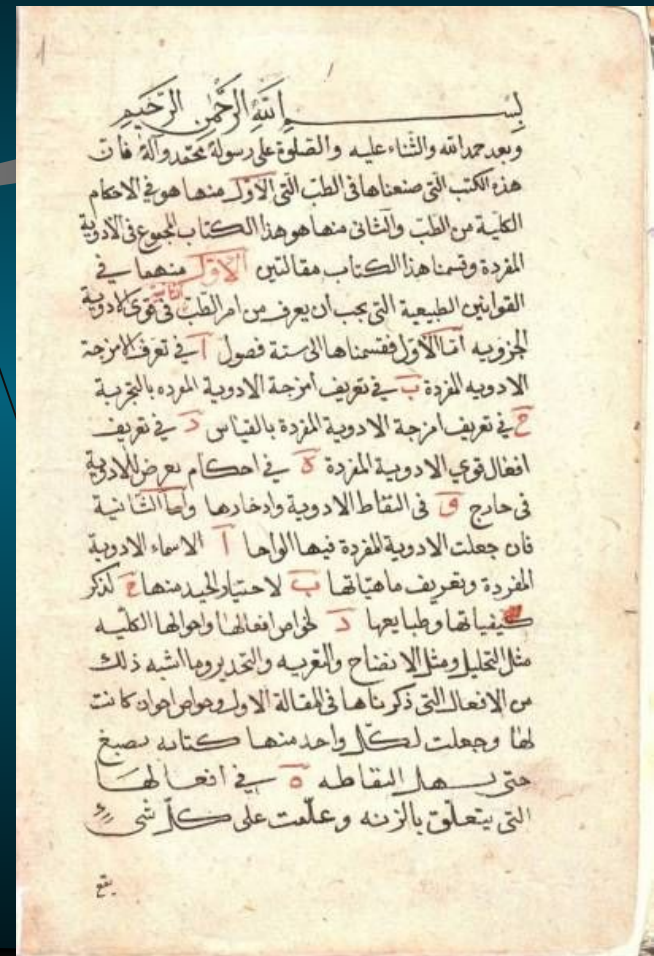 بســـم الله الرحمن الرحيم
وبعد حمد الله والثناء عليه والصلوة على رسولة محمد وآله فان
هذه الكتب التى صنعناها فى الطب التى الاول منها هو في الاحكام
الكلية من الطب والثانى منها هو هذا الكتاب المجموع فى الادوية
المفردة وقسمنا هذا الكتاب مقالتين الاول منهما في
القوانين الطبيعية التى يجب ان يعرف من امر الطب الثانية فى قوى الادوية
الجزويه امّا الاول فقسمناها الى ستة فصول ا في تعرف الامزجة
الادويه المفردة ب في تعريف أمزجة الادوية المفرده بالتجربة
ج في تعريف امزجة الادوية المفردة بالقياس د في تعريف
افعال قوي الادوية المفردة ه في احكام يعرض للادوية
فى خارج و فى التقاط الادوية وادخارها وأما الثانية
فان جعلت الادوية المفردة فيها الواحا ا الاسماء الادوية
المفردة وتعريف ماهيّاتها ب لاختيار الجيد منها ج لذكر
كيفياتها وطبايعها د لخواص افعالها واحوالها الكليه
مثل التحليل ومثل الانضاج والتغريه والتخدير وما اشبه ذلك
من الافعال التى ذكرناها فى المقالة الاولى وخواص اخوان كانت
لها وجعلت لكل واحد منها كتابه بصبغ
حتى يسهل التقاطه ه في افعالها
التى يتعلق بالزنه وعلّمت على كلّ شى
يقع